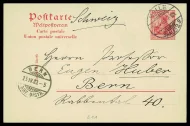 Postkarte
Schweiz
Weltpostverein
Carte postale
Union postale universelle
Herrn Professor
Eugen Huber
Bern
BERN
Rabbental 40.